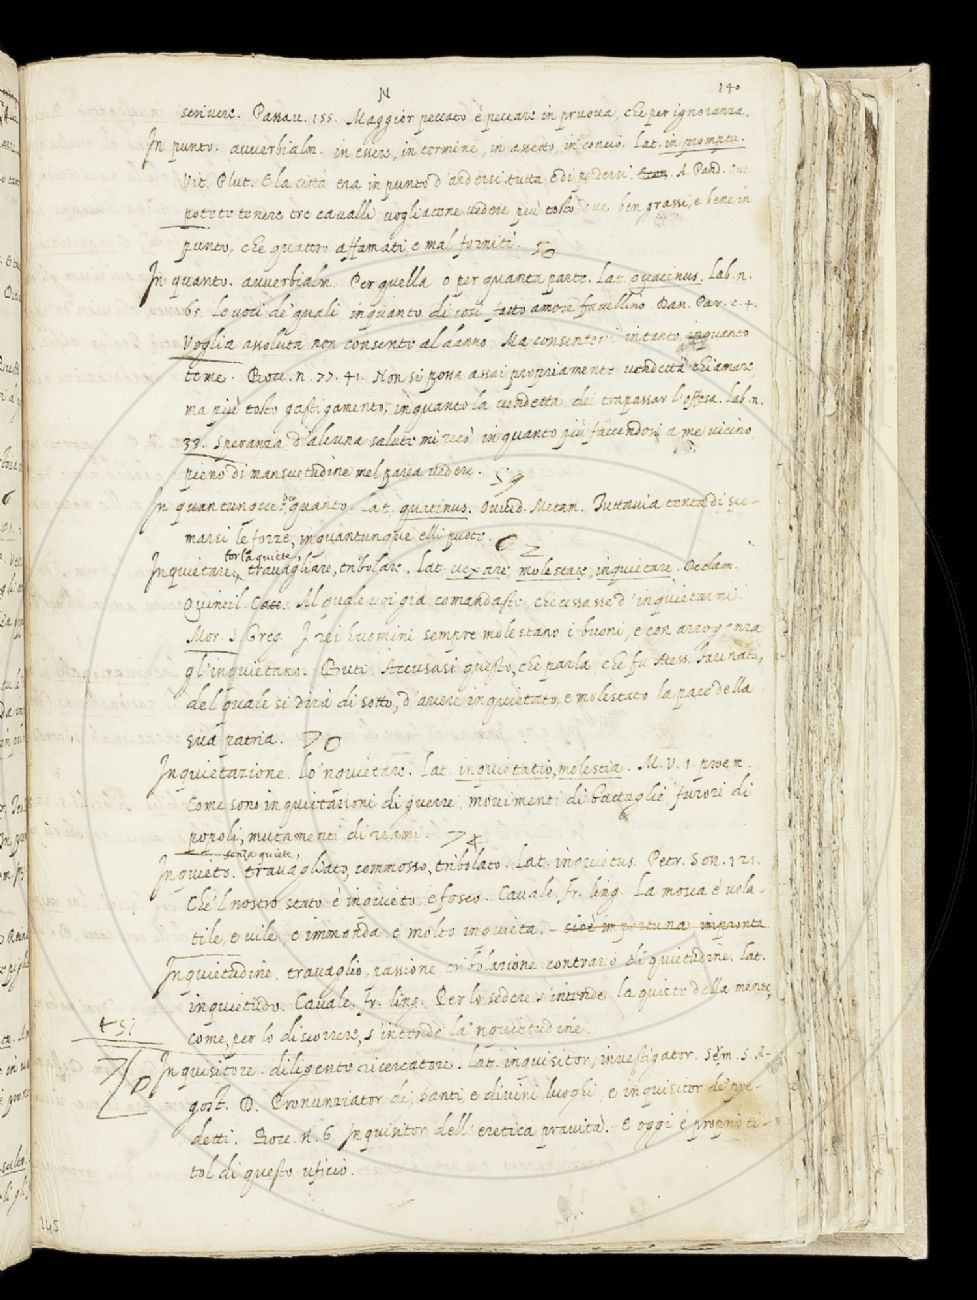 N 140
scrivere. Passav. 155. Maggior peccato è peccare in pruova, che per ignoranza.
In punto. avverbialm. in essere, in termine, in assetto, in concio. Lat. in promptu.
Vit. Plut. E la città era in punto d'ardersi tutta e di perdersi. A. Pand. Se
potete tenere tre cavalli, vogliatene vedere più tosto due ben grassi, e bene in
punto, che quattro affamati e mal forniti.
In quanto. avverbialm. Per quella o per quanta parte. Lat. quatinus. Lab. n.
65. Le voci de' quali inquanto di così fatto amore favellino. Dan. Par. c. 4.
Voglia assoluta non consente al danno Ma consentevi intanto inquanto
teme. Bocc. n. 77. 41. Non si possa assai propriamente vendetta chiamare
ma più tosto gastigamento, inquanto la vendetta dei trapassar l'offesa. Lab. n.
33. Speranza d'alcuna salute mi recò inquanto più faccendosi a me vicino
pieno di mansuetudine mel parea vedere. 59
In quantunque quanto. Lat. quatinus. Ovvid. Metam. Tuttavia tenta di sce-
marsi le forze, inquantunque elli puote. 62
tor la quiete,
Inquietare. travagliare, tribolare. Lat. vexare, molestare, inquietare. Declam.
Quintil. Al quale tu già comandasti, che cessasse d'inquietarmi.
Mor. S. Greg. I rei huomini sempre molestano i buoni, e con arroganza
gl'inquietano. Buti. Accusasi questo, che parla, che fu Mess. Farinata,
del quale si dirà di sotto, d'avere inquietato, e molestato la pace della
sua patria. 70
Inquietazione. Lo 'nquietare. Lat. inquietatio, molestia. M. V. 1. proem.
Come sono inquietazioni di guerre, movimenti di battaglie, furori di
popoli, mutamenti di reami. 74
senza quiete,
Inquieto. travagliato, commosso, tribolato. Lat. inquietus. Petr. Son. 121.
Che 'l nostro stato è inquieto, e fosco. Cavalc. fr. ling. La mosca è vola-
tile, e vile, e immonda e molto inquieta, cioè importuna, impronta
Inquietudine. travaglio, passione, tribolazione contrario di quietudine. Lat.
inquietudo. Cavalc. fr. ling. Per lo sedere s'intende la quiete della mente,
come, per lo discorrere, s'intende la 'nquietudine.
451
Inquisitore. diligente ricercatore. Lat. inquisitor, investigator. Serm. S. A-
gost. D. Pronunziator de' Santi, e divini luoghi, e inquisitor de' pre-
detti. Bocc. n. 6. Inquisitor dell'eretica pravità. E oggi è proprio ti-
tol di questo uficio.
245